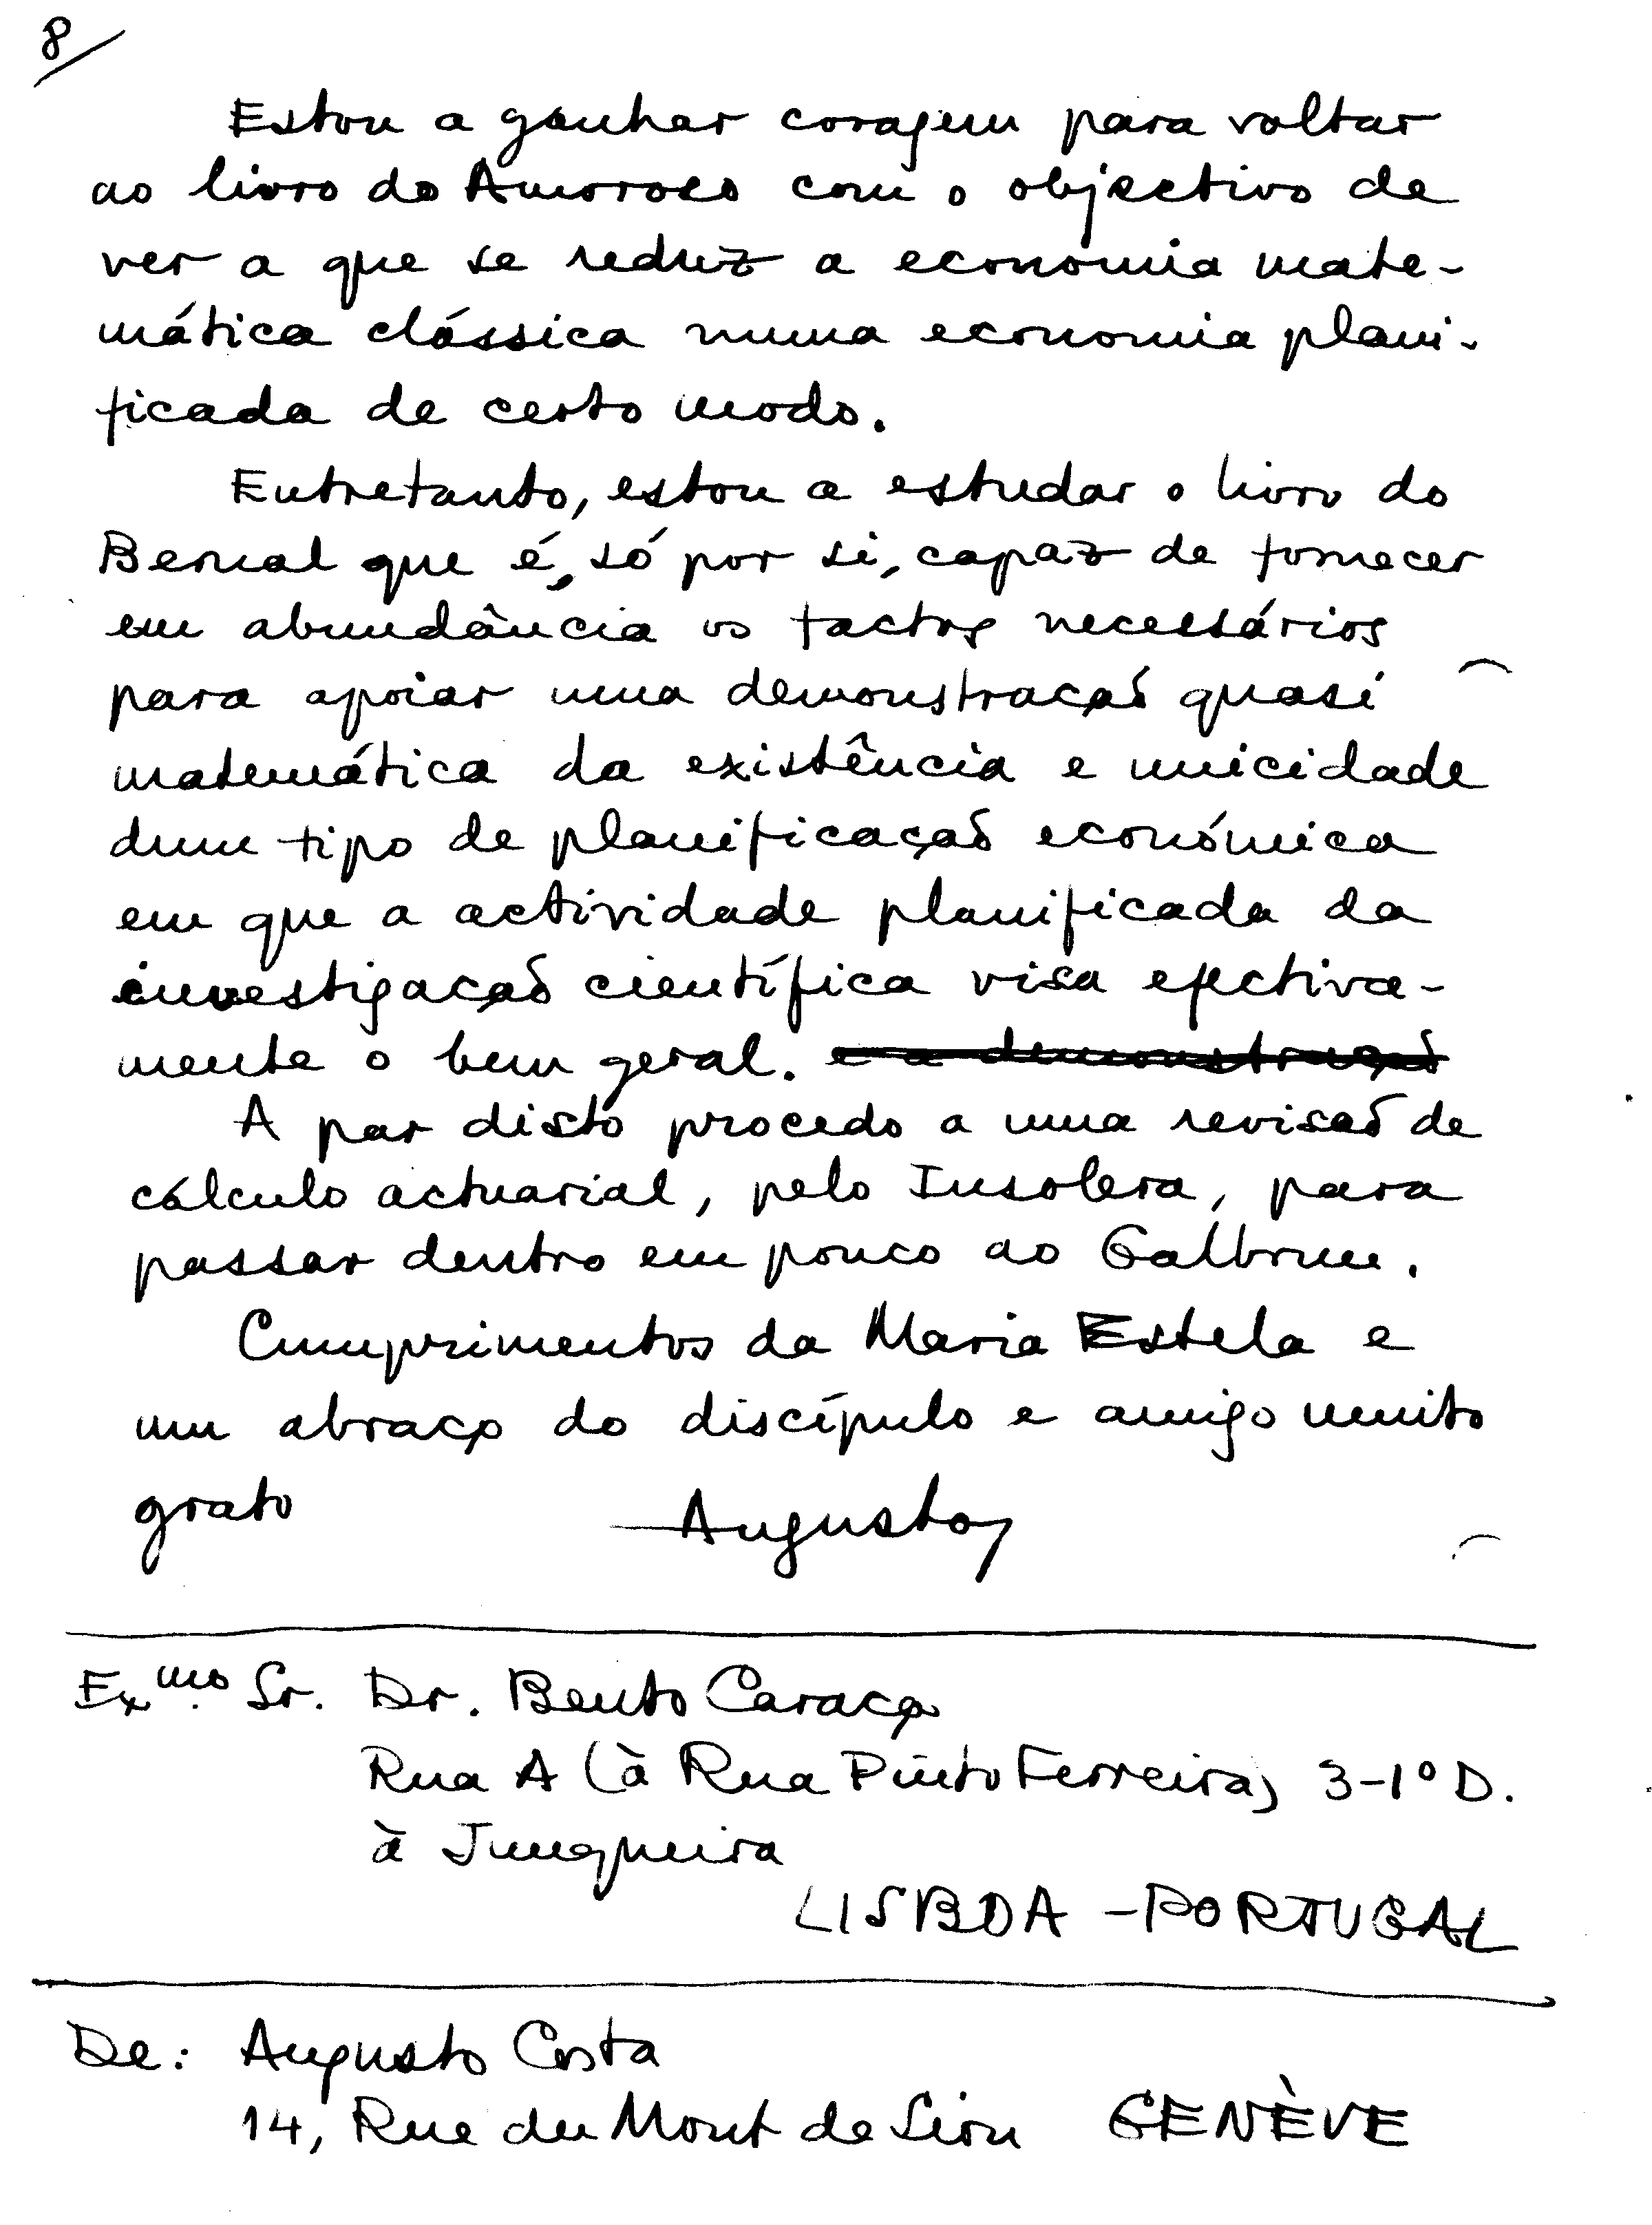 8
Estou a ganhar coragem para voltar
ao livro do Amoroso com o objectivo de
ver a que se reduz a economia mate-
mática clássica numa economia plani-
ficada de certo modo.
Entretanto, estou a estudar o livro do
Bernal que é, só por si, capaz de fornecer
em abundância os factos necessários
para apoiar uma demonstração quasi
matemática da existência e unicidade
dum tipo de planificação económica
em que a actividade planificada da
investigação científica visa efectiva-
mente o bem geral. e a demonstração
A par disto procedo a uma revisão de
cálculo actuarial, pelo Insolera, para
passar dentro em pouco ao Galbrun.
Cumprimentos da Maria Estela e
um abraço do discípulo e amigo muito
grato Augusto
Exmo. Sr. Dr. Bento Caraça
Rua A (à Rua Pinto Ferreira) 3-1º D.
à Junqueira
LISBOA - PORTUGAL
De: Augusto Costa
14, Rue du Mont de Sion GENÈVE